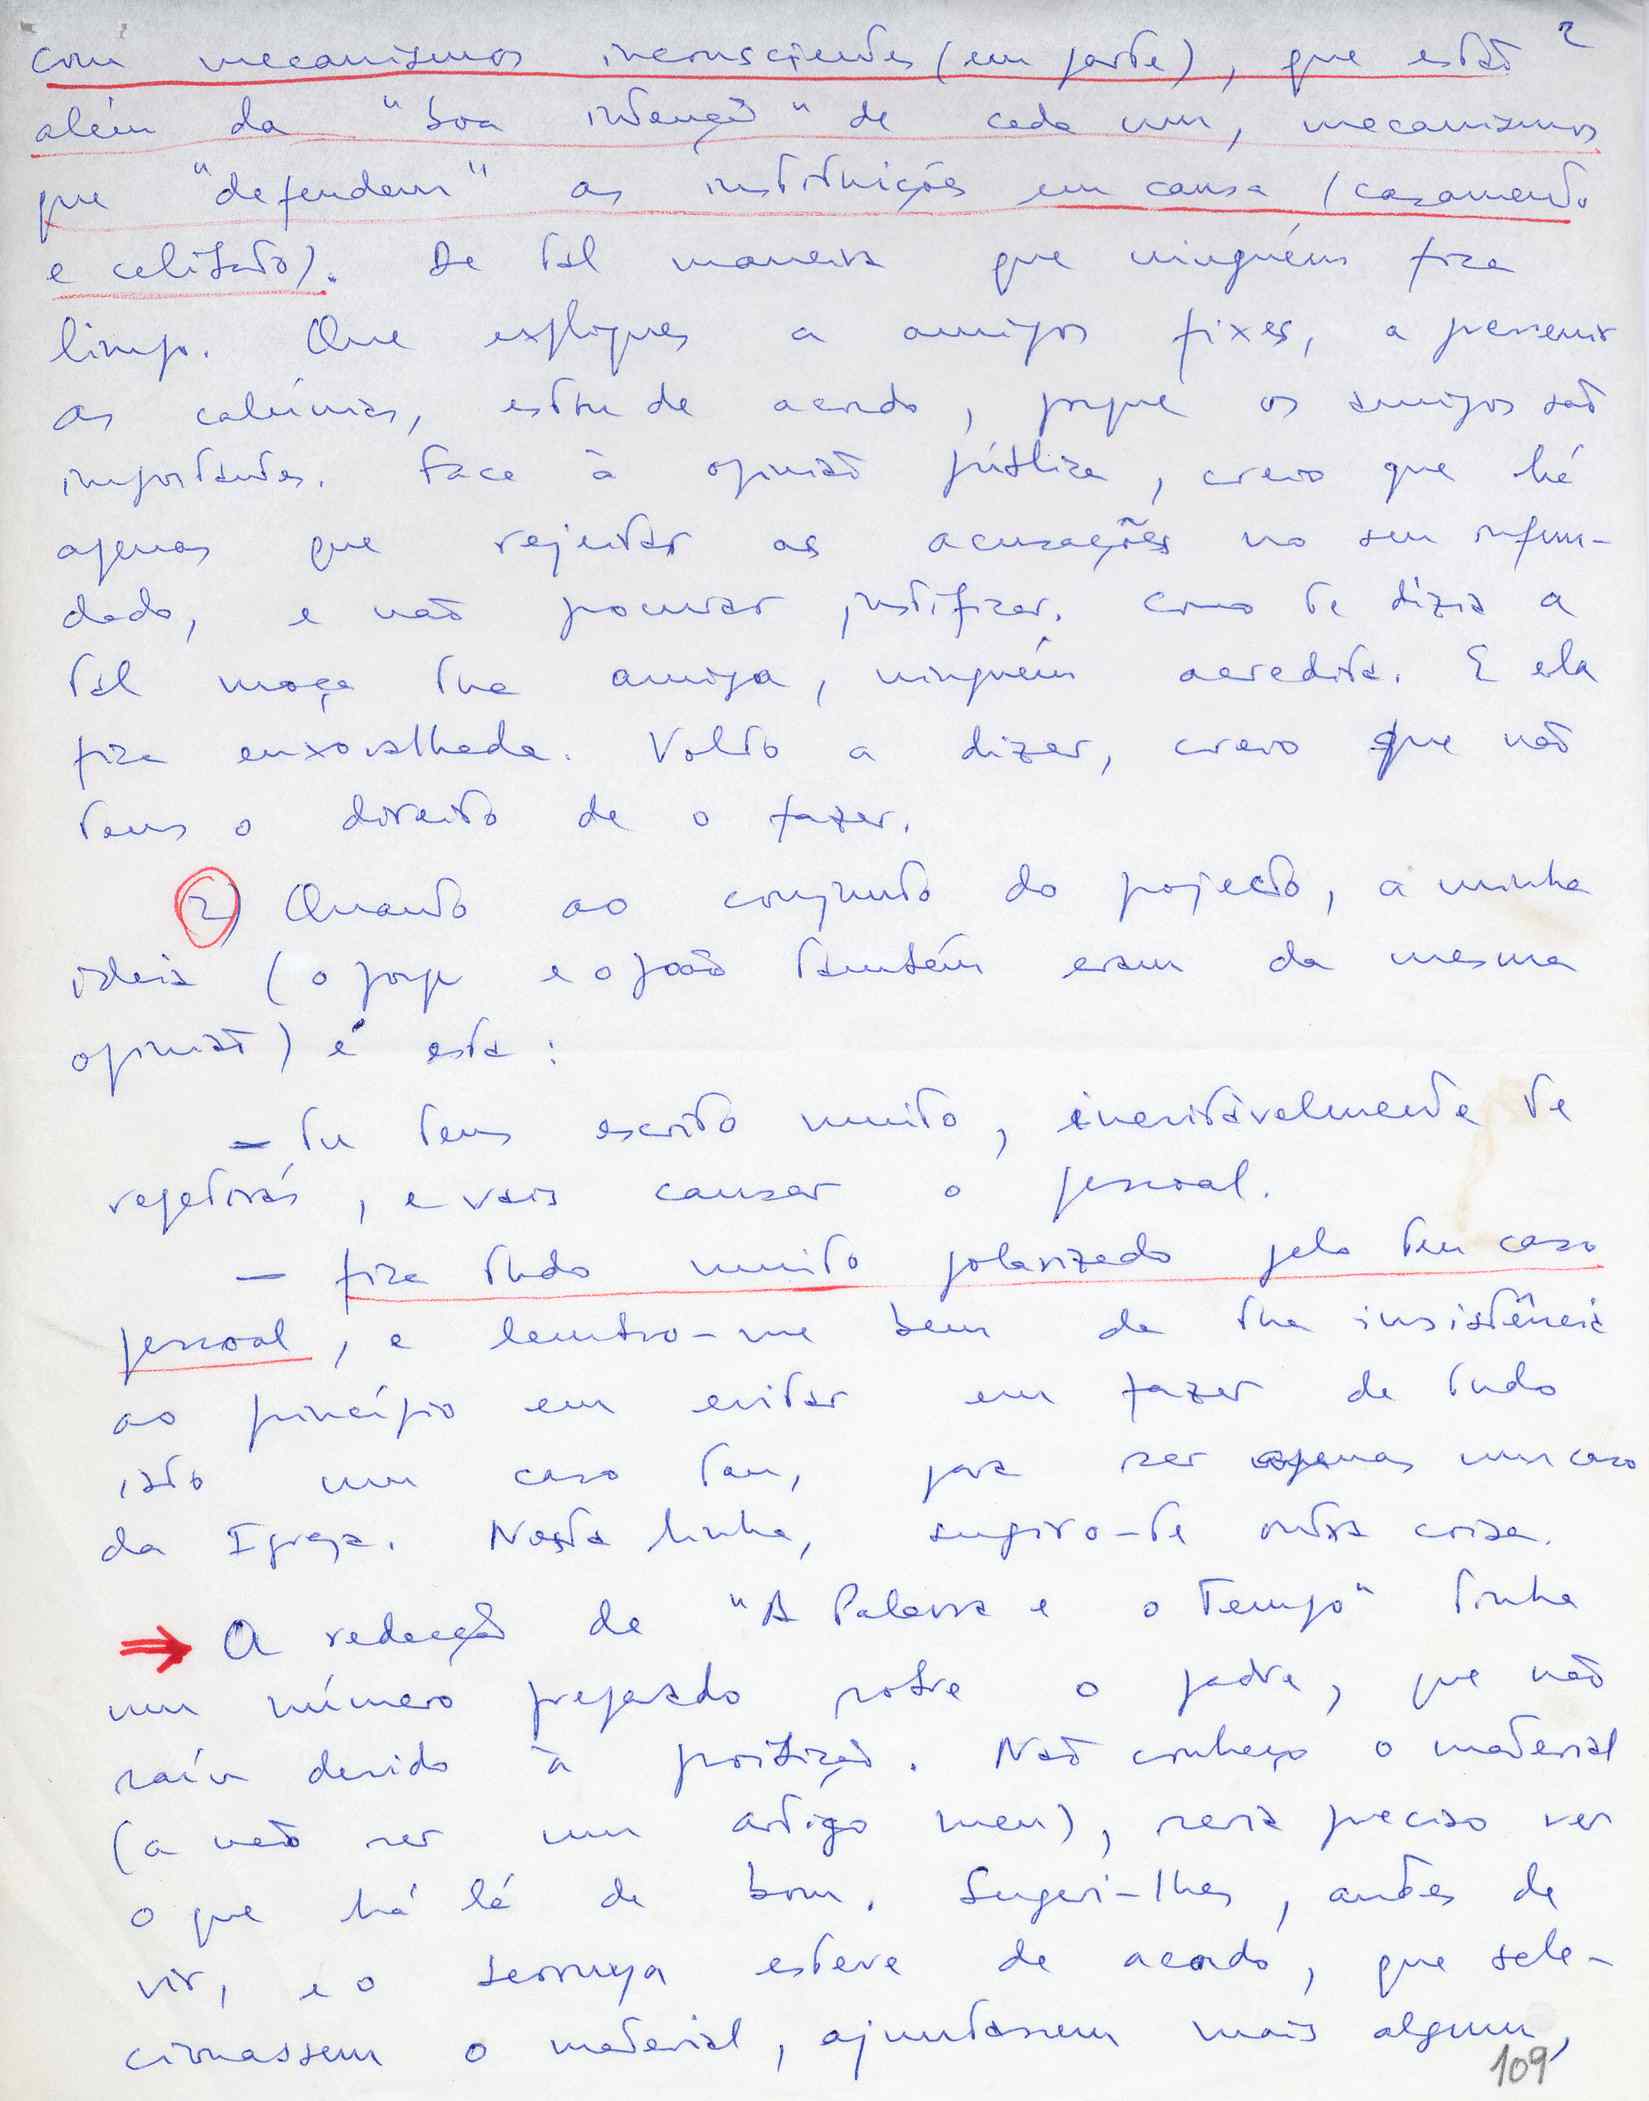 2
com mecanismos inconscientes (em parte), que estão
além da "boa intenção" de cada um, mecanismos
que "defendem" as instituições em causa (casamento
e celibato). De tal maneira que ninguém fica
limpo. Que expliques a amigos fixes, a prevenir
as calúnias, estou de acordo, porque os amigos são
importantes. Face à opinião pública, creio que há
apenas que rejeitar as acusações no seu infun-
dado, e não procurar justificar. Como te dizia a
tal moça tua amiga, ninguém acredita. E ela
fica enxovalhada. Volto a dizer, creio que não
tens o direito de o fazer.
2) Quanto ao conjunto do projecto, a minha
ideia (o Jorge e o João também eram da mesma
opinião) é esta:
- tu tens escrito muito, inevitàvelmente te
repetirás, e vais cansar o pessoal.
- fica tudo muito polarizado pelo teu caso
pessoal, e lembro-me bem da tua insistência
ao princípio em evitar em fazer de tudo
isto um caso teu, para ser apenas um caso
da Igreja. Nesta linha, sugiro-te outra coisa.
→ A redacção de "A Palavra e o Tempo" tinha
um número preparado sobre o padre, que não
saíu devido à proibição. Não conheço o material
(a não ser um artigo meu), seria preciso ver
o que há lá de bom. Sugeri-lhes, antes de
vir, e o Serruya esteve de acordo, que sele-
cionassem o material, ajuntassem mais algum,
109